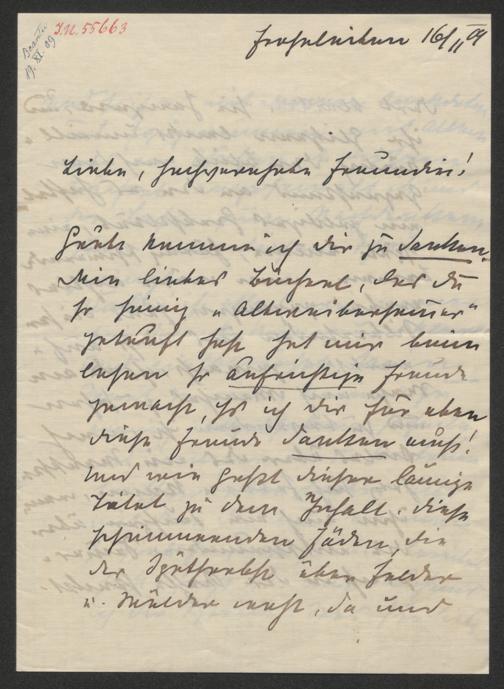 I.N. 55663
19. XI. 09
16/II 09
Liebe, hochverehrte Freundin!
Heute komme ich dir zu danken.
Dein liebes Büchert, das du
so sinnig "Altweibersommer"
getauft hast hat mir beim
lesen so aufrichtige Freude
gemacht, so ich dir für eben
diese Freude danken muß!
Und wie paßt dieser sinnige
Titel zu dem Inhalt. diese
schimmernden Fäden, die
der Spätherbst über Felder
u. Wälder webt, da und